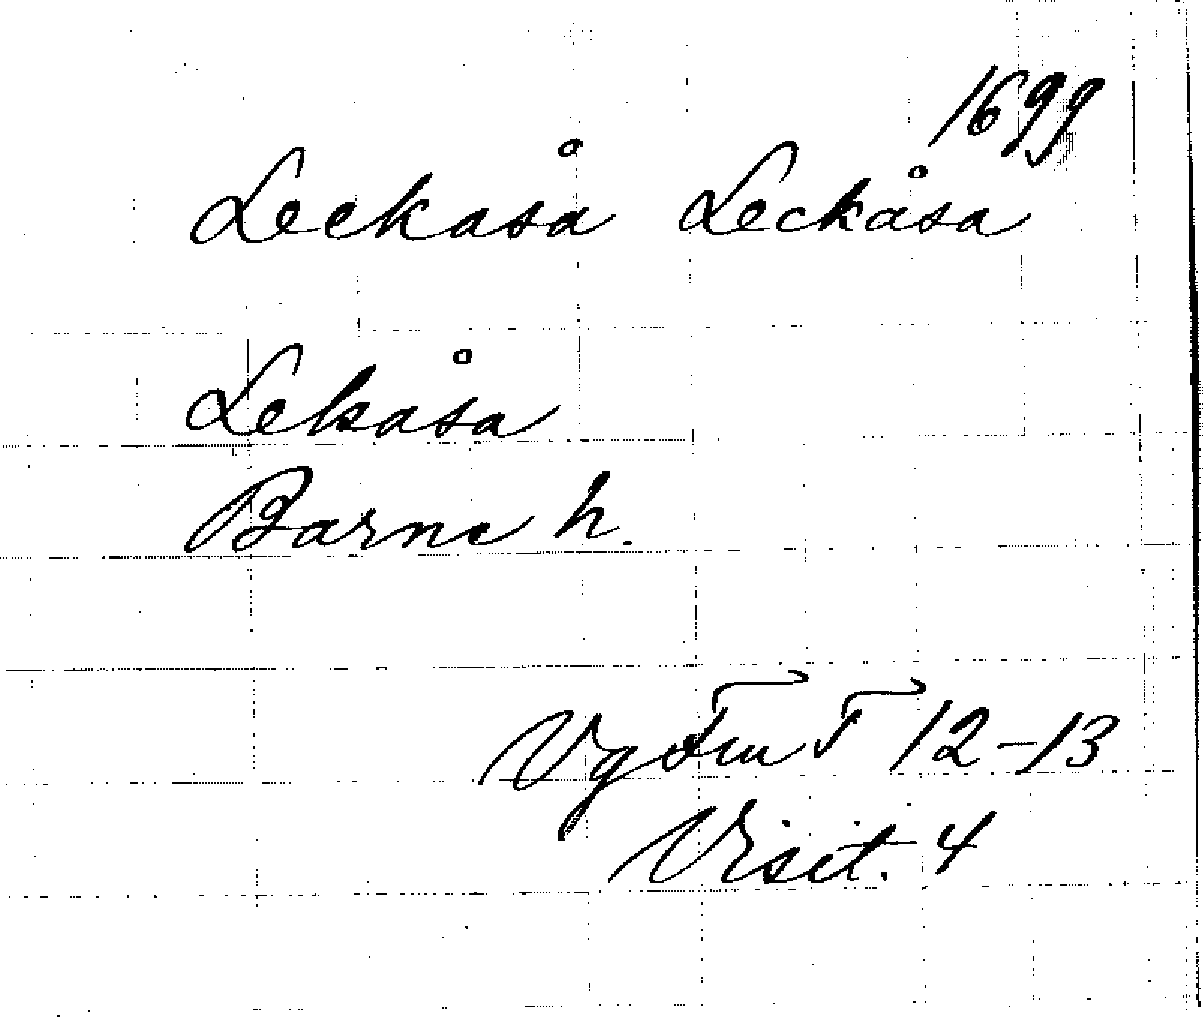 1699
Leckåsa Leckåsa
Lekåsa
Barne h.
VgFmT 12-13
Visit. 4